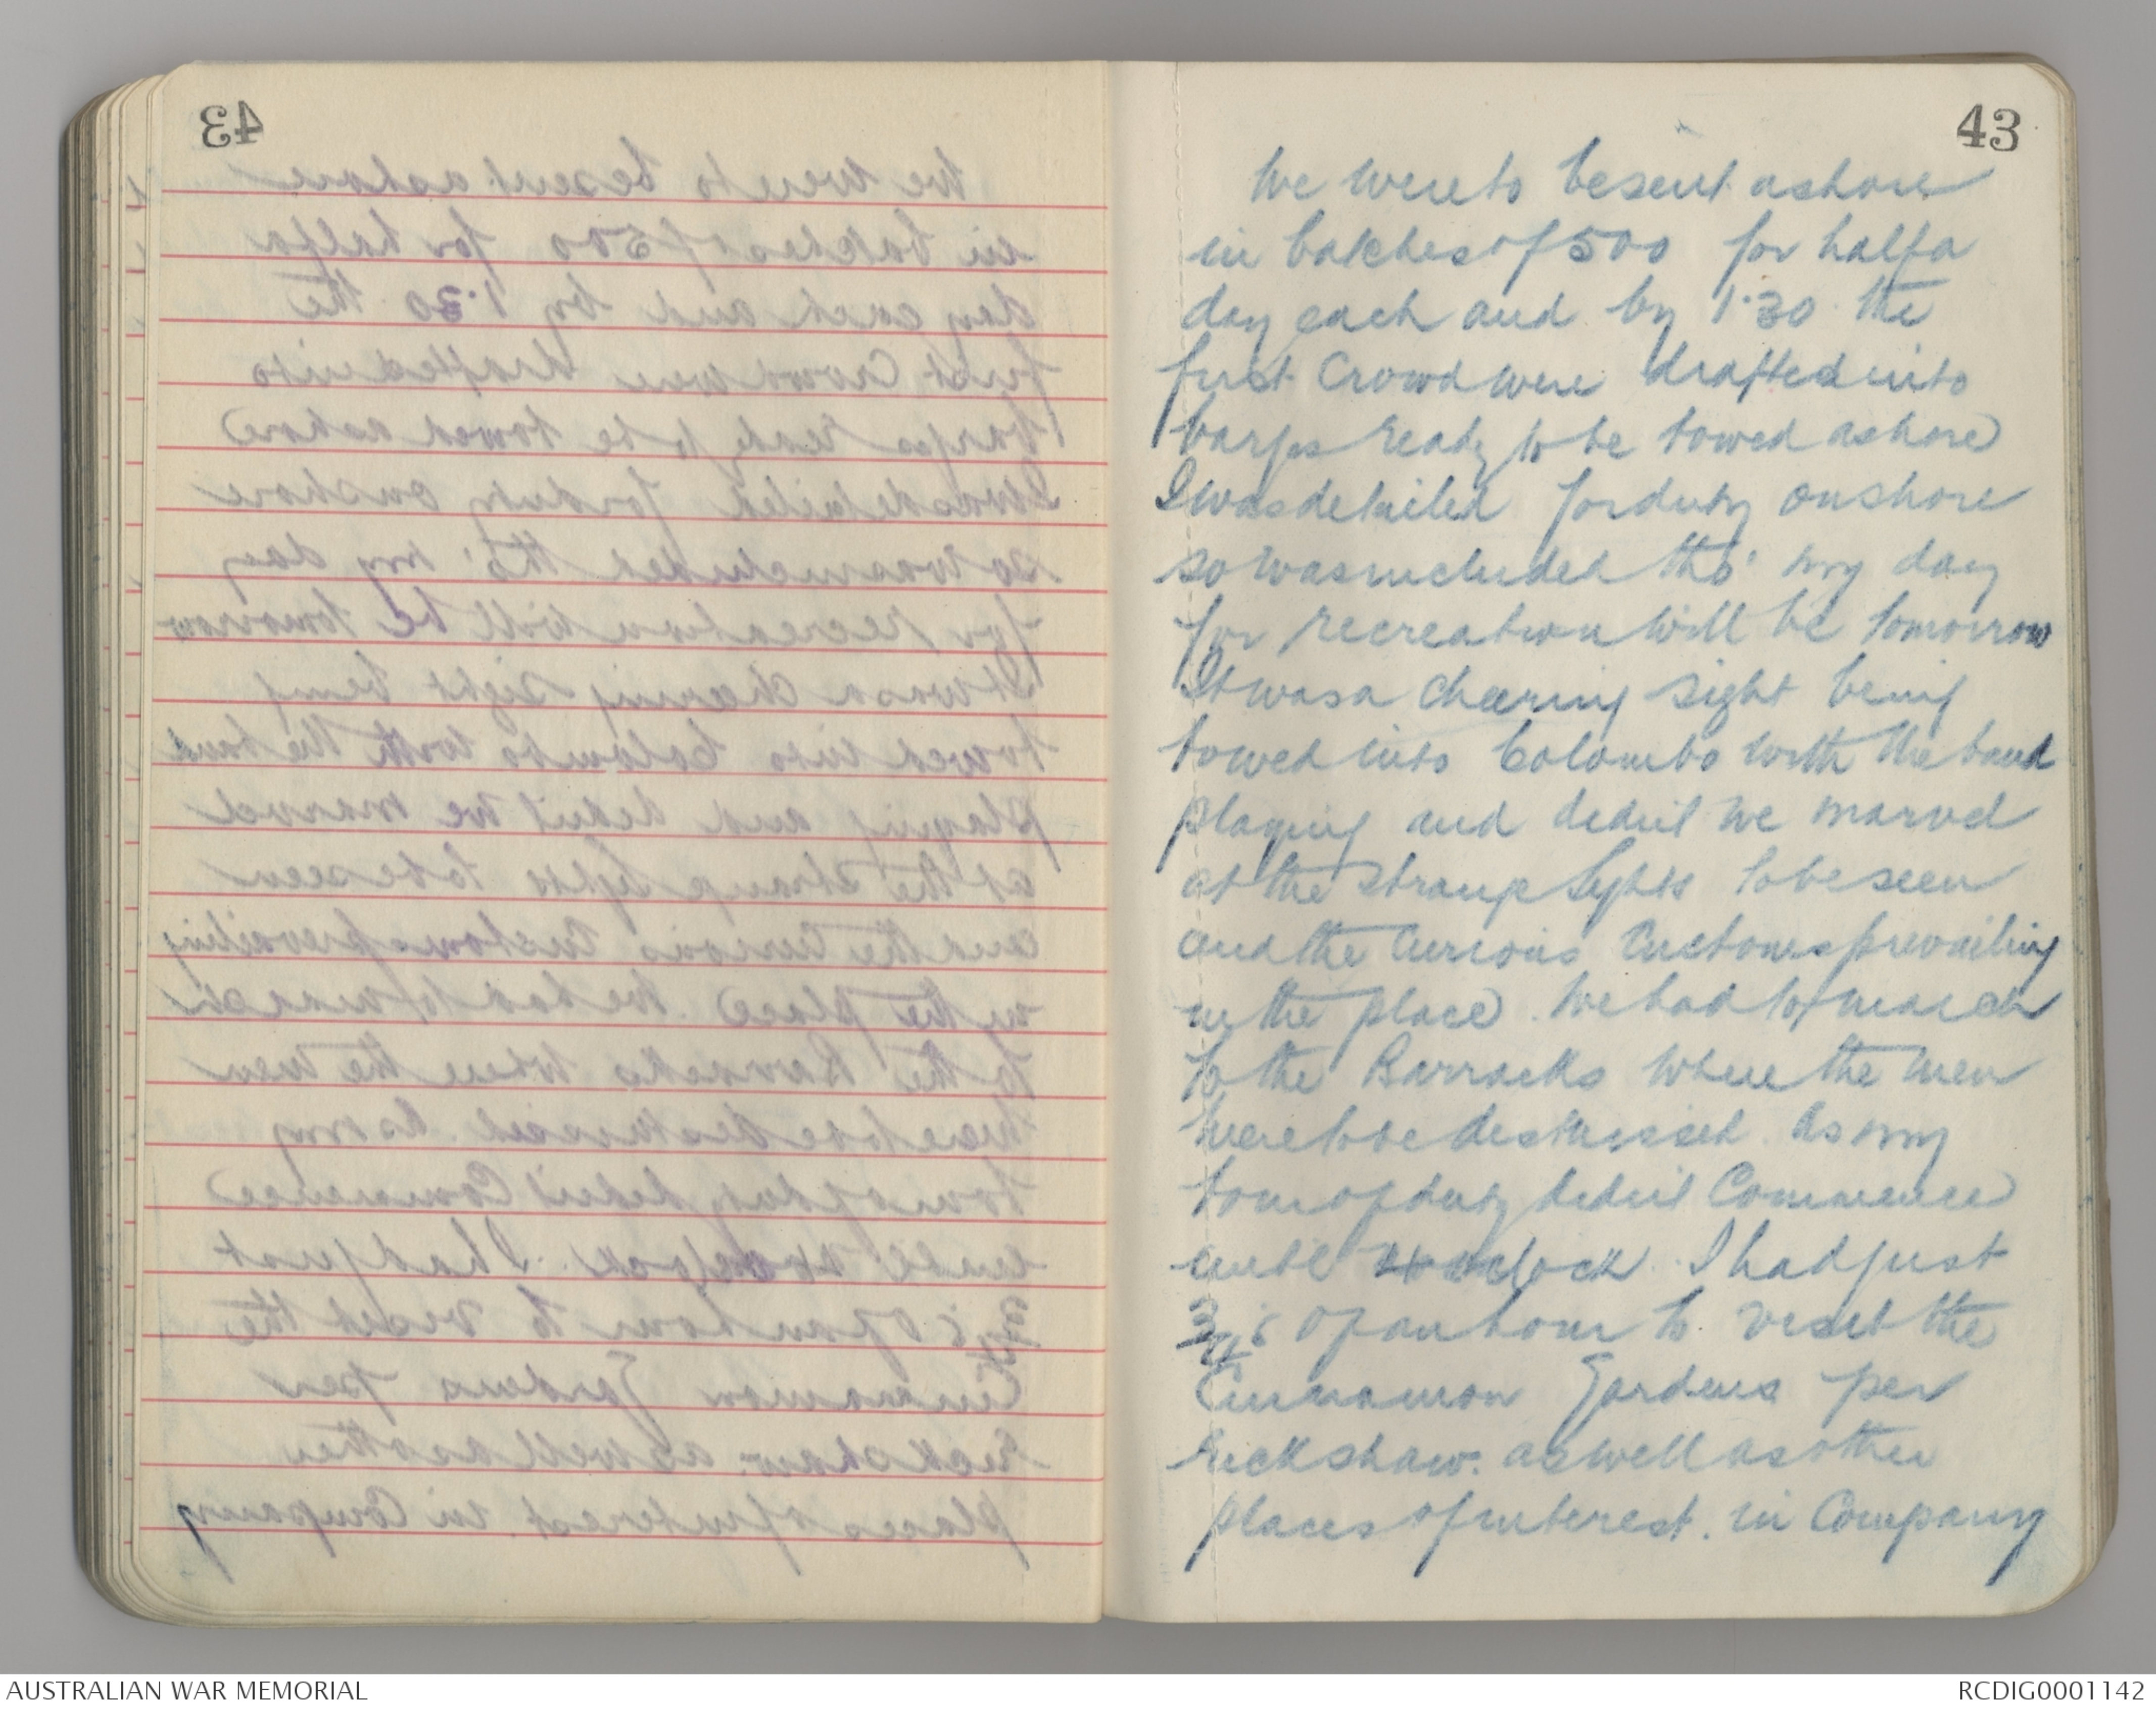 43
We were to be sent ashore
in batches of 500 for half a
day each and by 1.30 the
first Crowd were drafted into
barges ready to be towed ashore
I was detailed for duty on shore
so was included tho' my day
for recreation will be tomorrow
It was a cheering sight being
towed into Colombo with the band
playing and didnt we marvel
at the strange sights to be seen
and the curious customs prevailing
in the place. We had to march
to the Barracks where the men
were to be dismissed. As my
tour of duty didnt Commence
until 4 oclock. I had just
3/4s of an hour to visit the
Cinnamon Gardens per
rickshaw. as well as other
places of interest. in Company
AUSTRALIAN WAR MEMORIAL
RCDIG0001142